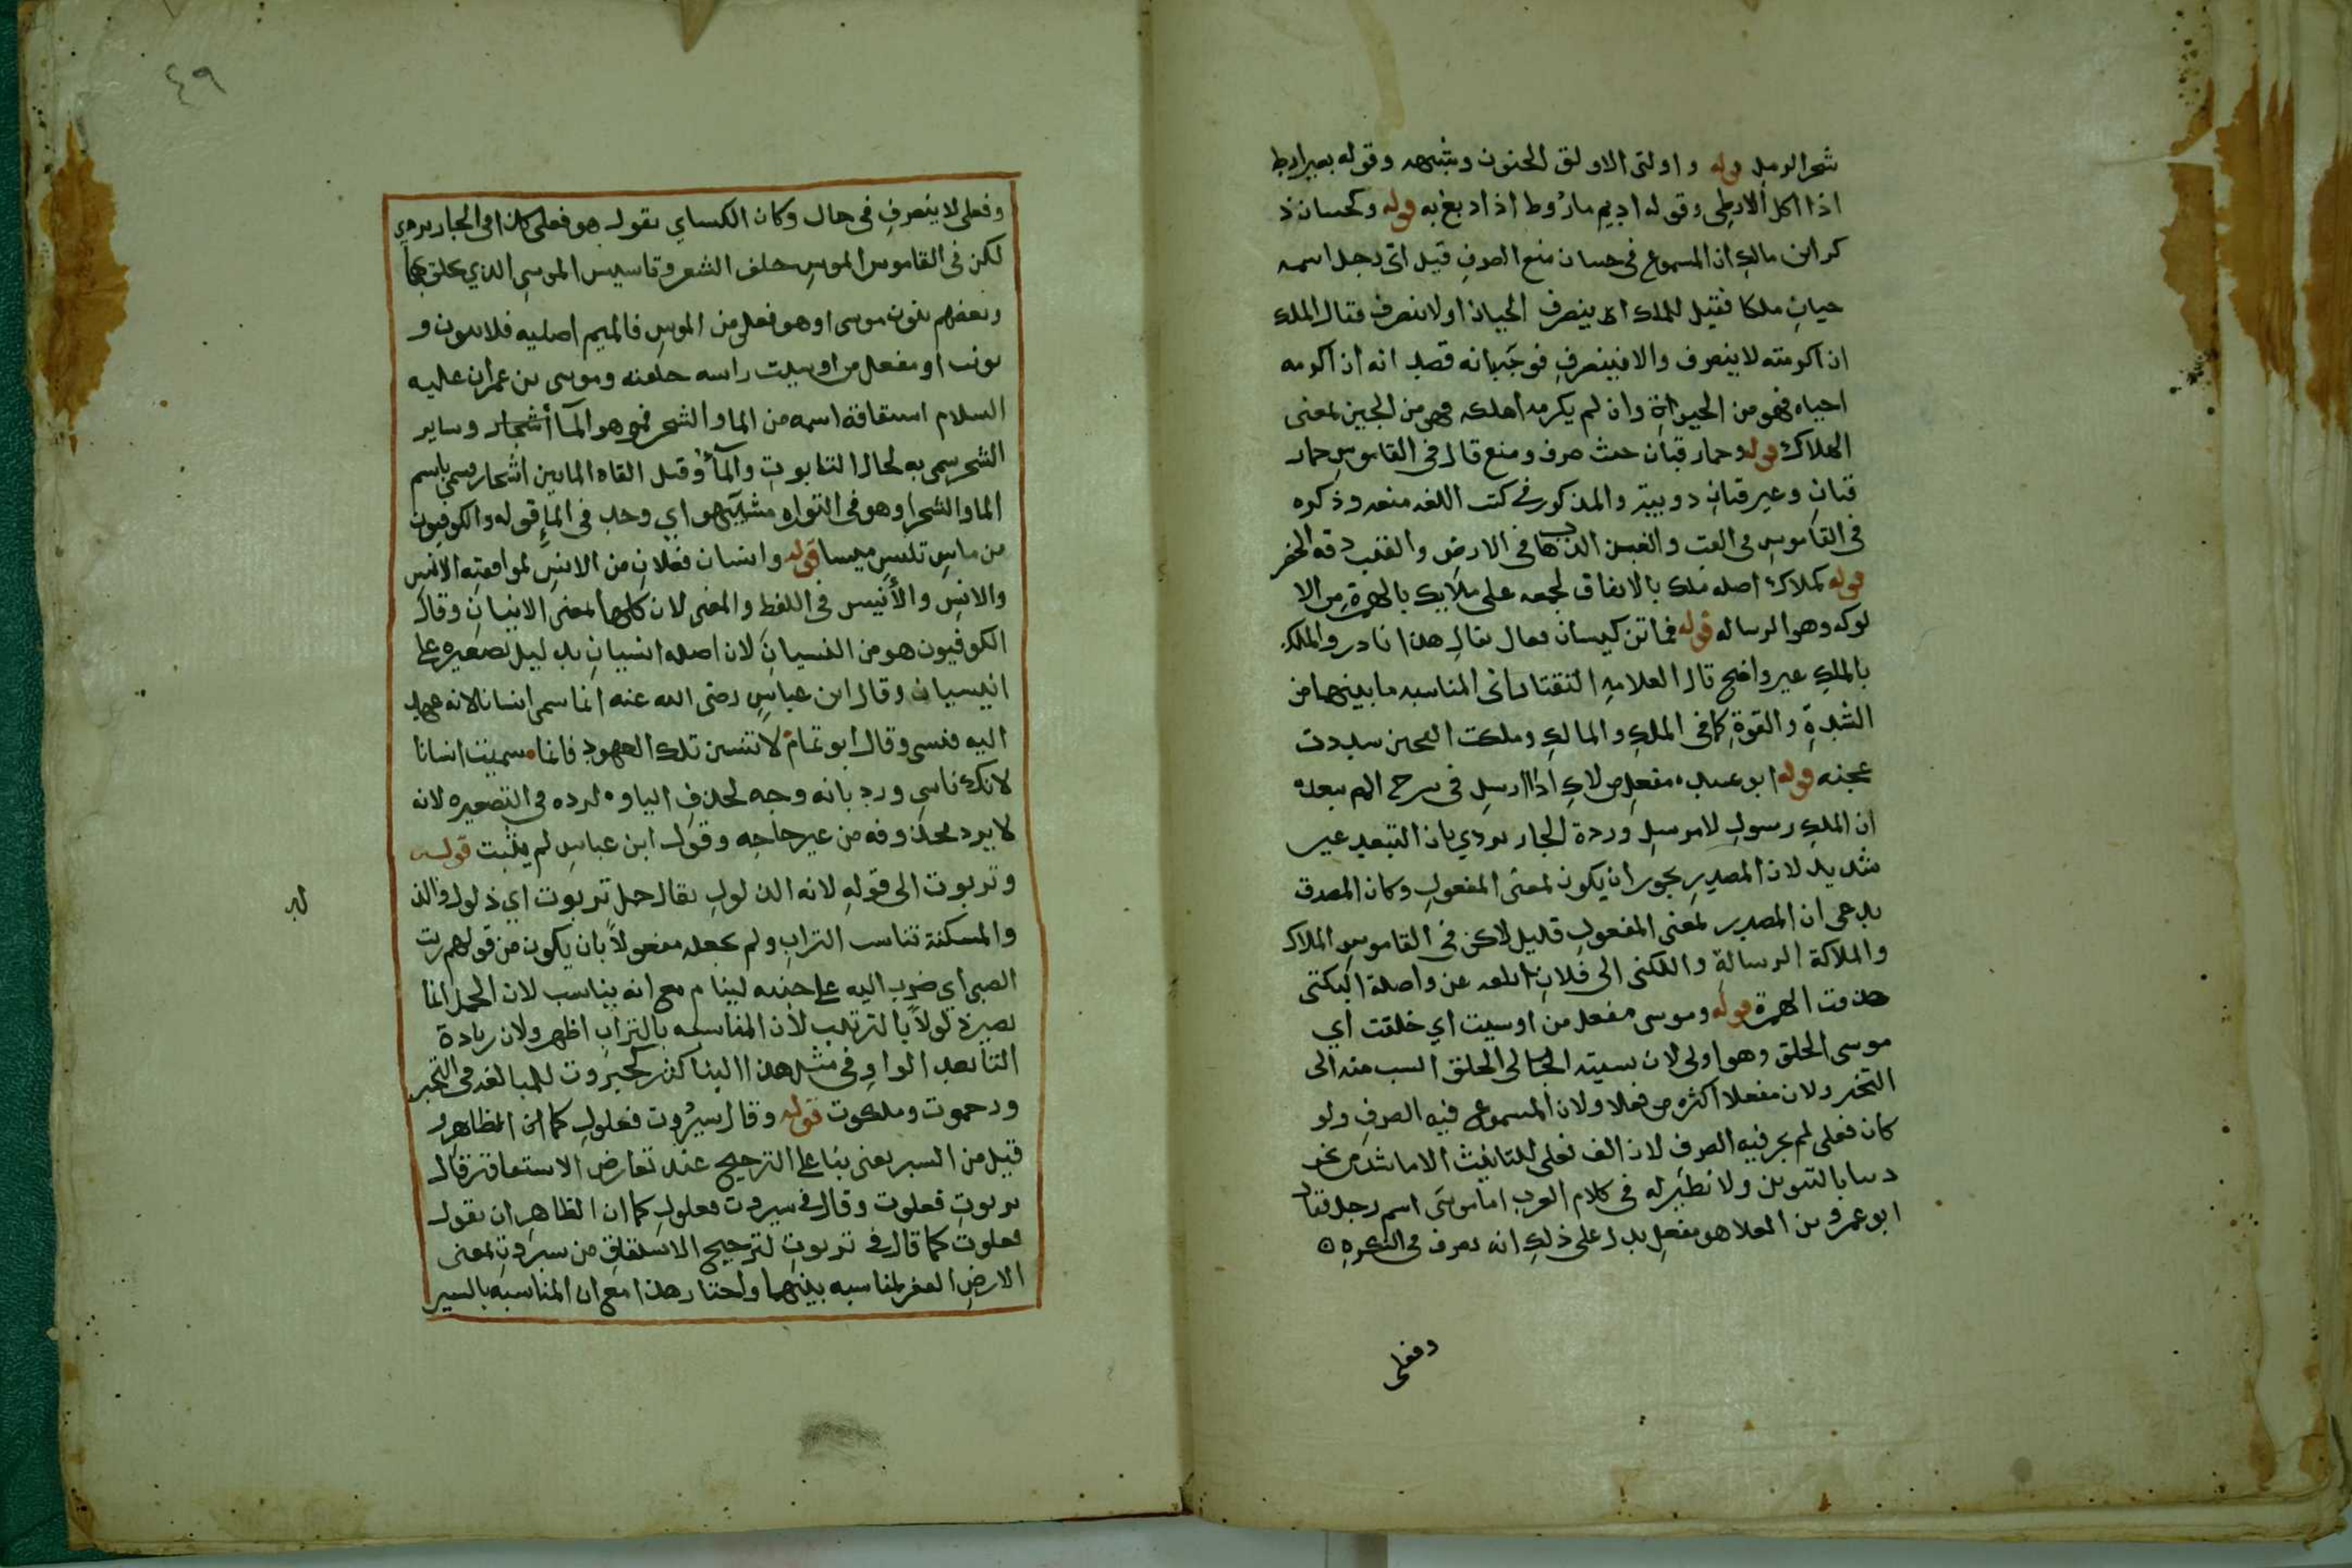 شجر الرمل قوله واولق الاولق الجنون وشبهه وقوله بعير اريط
اذا اكل الارطى وقوله اديم ماروط اذا ادبغ به قوله وكحسان ذ
كر ابن مالك ان المسموع فى حسان منع الصرف قيل اتى رجل اسمه
حيان ملكا فقيل للملك اينصرف الحيان اولا ينصرف فقال الملك
ان اكرمته لا ينصرف والا فينصرف فوجه بانه قصد انه ان اكرمه
احياه فهو من الحيوة وان لم يكرمه اهلكه فهو من الحين بمعنى
الهلاك قوله وحمار قبان حيث صرف ومنع قال فى القاموس حمار
قبان وعير قبان دويبة والمذكور فى كتب اللغه منعه وذكره
فى القاموس فى القب والقبن الذهاب فى الارض والقبب دقة الخصر
قوله كملاك اصله ملك بالاتفاق لجمعه على ملايك بالهمزة من الا
لوكه وهو الرساله قوله فماتن كيسان فعال يقال هذا نادر والملك
بالملك غير واضح قال العلامه التفتازانى المناسبه ما بينهما من
الشدة والقوة كما فى الملك والمالك وملكت العجين شددت
عجنه قوله ابو عبيده مفعل من لاك اذا ارسل فى شرح الهم بعده
ان الملك رسول لا مرسل ورده الجار بردي بان التبعيد غير
شديد لان المصدر يجوز ان يكون بمعنى المفعول وكان المصدق
يدعى ان المصدر بمعنى المفعول قليل لاكن فى القاموس الملاك
والملاكة الرسالة والكنى الى فلان ابلغه عن واصله الئكنى
حذفت الهمزة قوله وموسى مفعل من اوسيت اي حلقت اي
موسى الحلق وهو اولى لان نسبته الى الحلق انسب منه الى
التبختر ولان مفعلا اكثر من فعلا ولان المسموع فيه الصرف ولو
كان فعلى لم يجز فيه الصرف لان الف فعلى للتانيث الا ما شذ من نحو
دنيا بالتنوين ولا نظير له فى كلام العرب اما موسى اسم رجل فقال
ابو عمرو بن العلا هو مفعل يدل على ذلك انه يصرف فى النكره
وفعلى
٤٩
وفعلى لا ينصرف فى حال وكان الكساي يقول هو فعلى كذا فى الجار بردي
لكن فى القاموس الموس حلق الشعر وتاسيس الموسى الذي يحلق بها
وبعضهم ينون موسى او هو فعلى من الموس فالميم اصليه فلا ينون و
يونث او مفعل من اوسيت راسه حلقته وموسى بن عمران عليه
السلام اشتقاقة اسمه من الما والشجر فمو هو المآ أشجار وساير
الشجر سمى به لحال التابوت والمآ وقيل القاه الما بين اشجار فسمى باسم
الما والشجر او هو فى التوراه مشيتهو اي وجد فى الما قوله والكوفيون
من ماس تلبس ميسا قوله وانسان فعلان من الانس لموافقته الانس
والانس والأنيس فى اللفظ والمعنى لان كلها بمعنى الانسان وقال
الكوفيون هو من النسيان لان اصله انسيان بدليل تصغيره على
انيسيان وقال ابن عباس رضى الله عنه انما سمى انسانا لانه عهد
اليه فنسى وقال ابو تمام لا تنسين تلك العهود فانما سميت انسانا
لانك ناسى ورد بانه وجه لحذف الياو ه لرده فى التصغيره لانه
لا يرد محذوفه من غير حاجه وقول ابن عباس لم يثبت قوله
وتربوت الى قوله لانه الذلول يقال جمل تربوت اي ذلول والذ
لة
والمسكنة تناسب التراب ولم يجعله مفعولا بان يكون من قولهم ربت
الصبى اي ضرب اليه على جنبه لينام مع انه يناسب لان الجمل انما
يصير ذلولا بالترتيب لان المناسبه بالتراب اظهر ولان زيادة
التا بعد الواو فى مثل هذا البنا كثر كجبروت للمبالغه فى التجبر
ورحموت وملكوت قوله وقال سبروت فعلول كما ان الظاهر
قيل من السبر يعنى بنا على الترجيح عند تعارض الاشتقاقتر قال
تربوت فعلوت وقال فى سبروت فعلول كما ان الظاهر ان يقول
فعلوت كما قال فى تربوت لترجيح الاشتقاق من سبروت بمعنى
الارض القفر لمناسبه بينهما واختار هذا مع ان المناسبه بالسبر